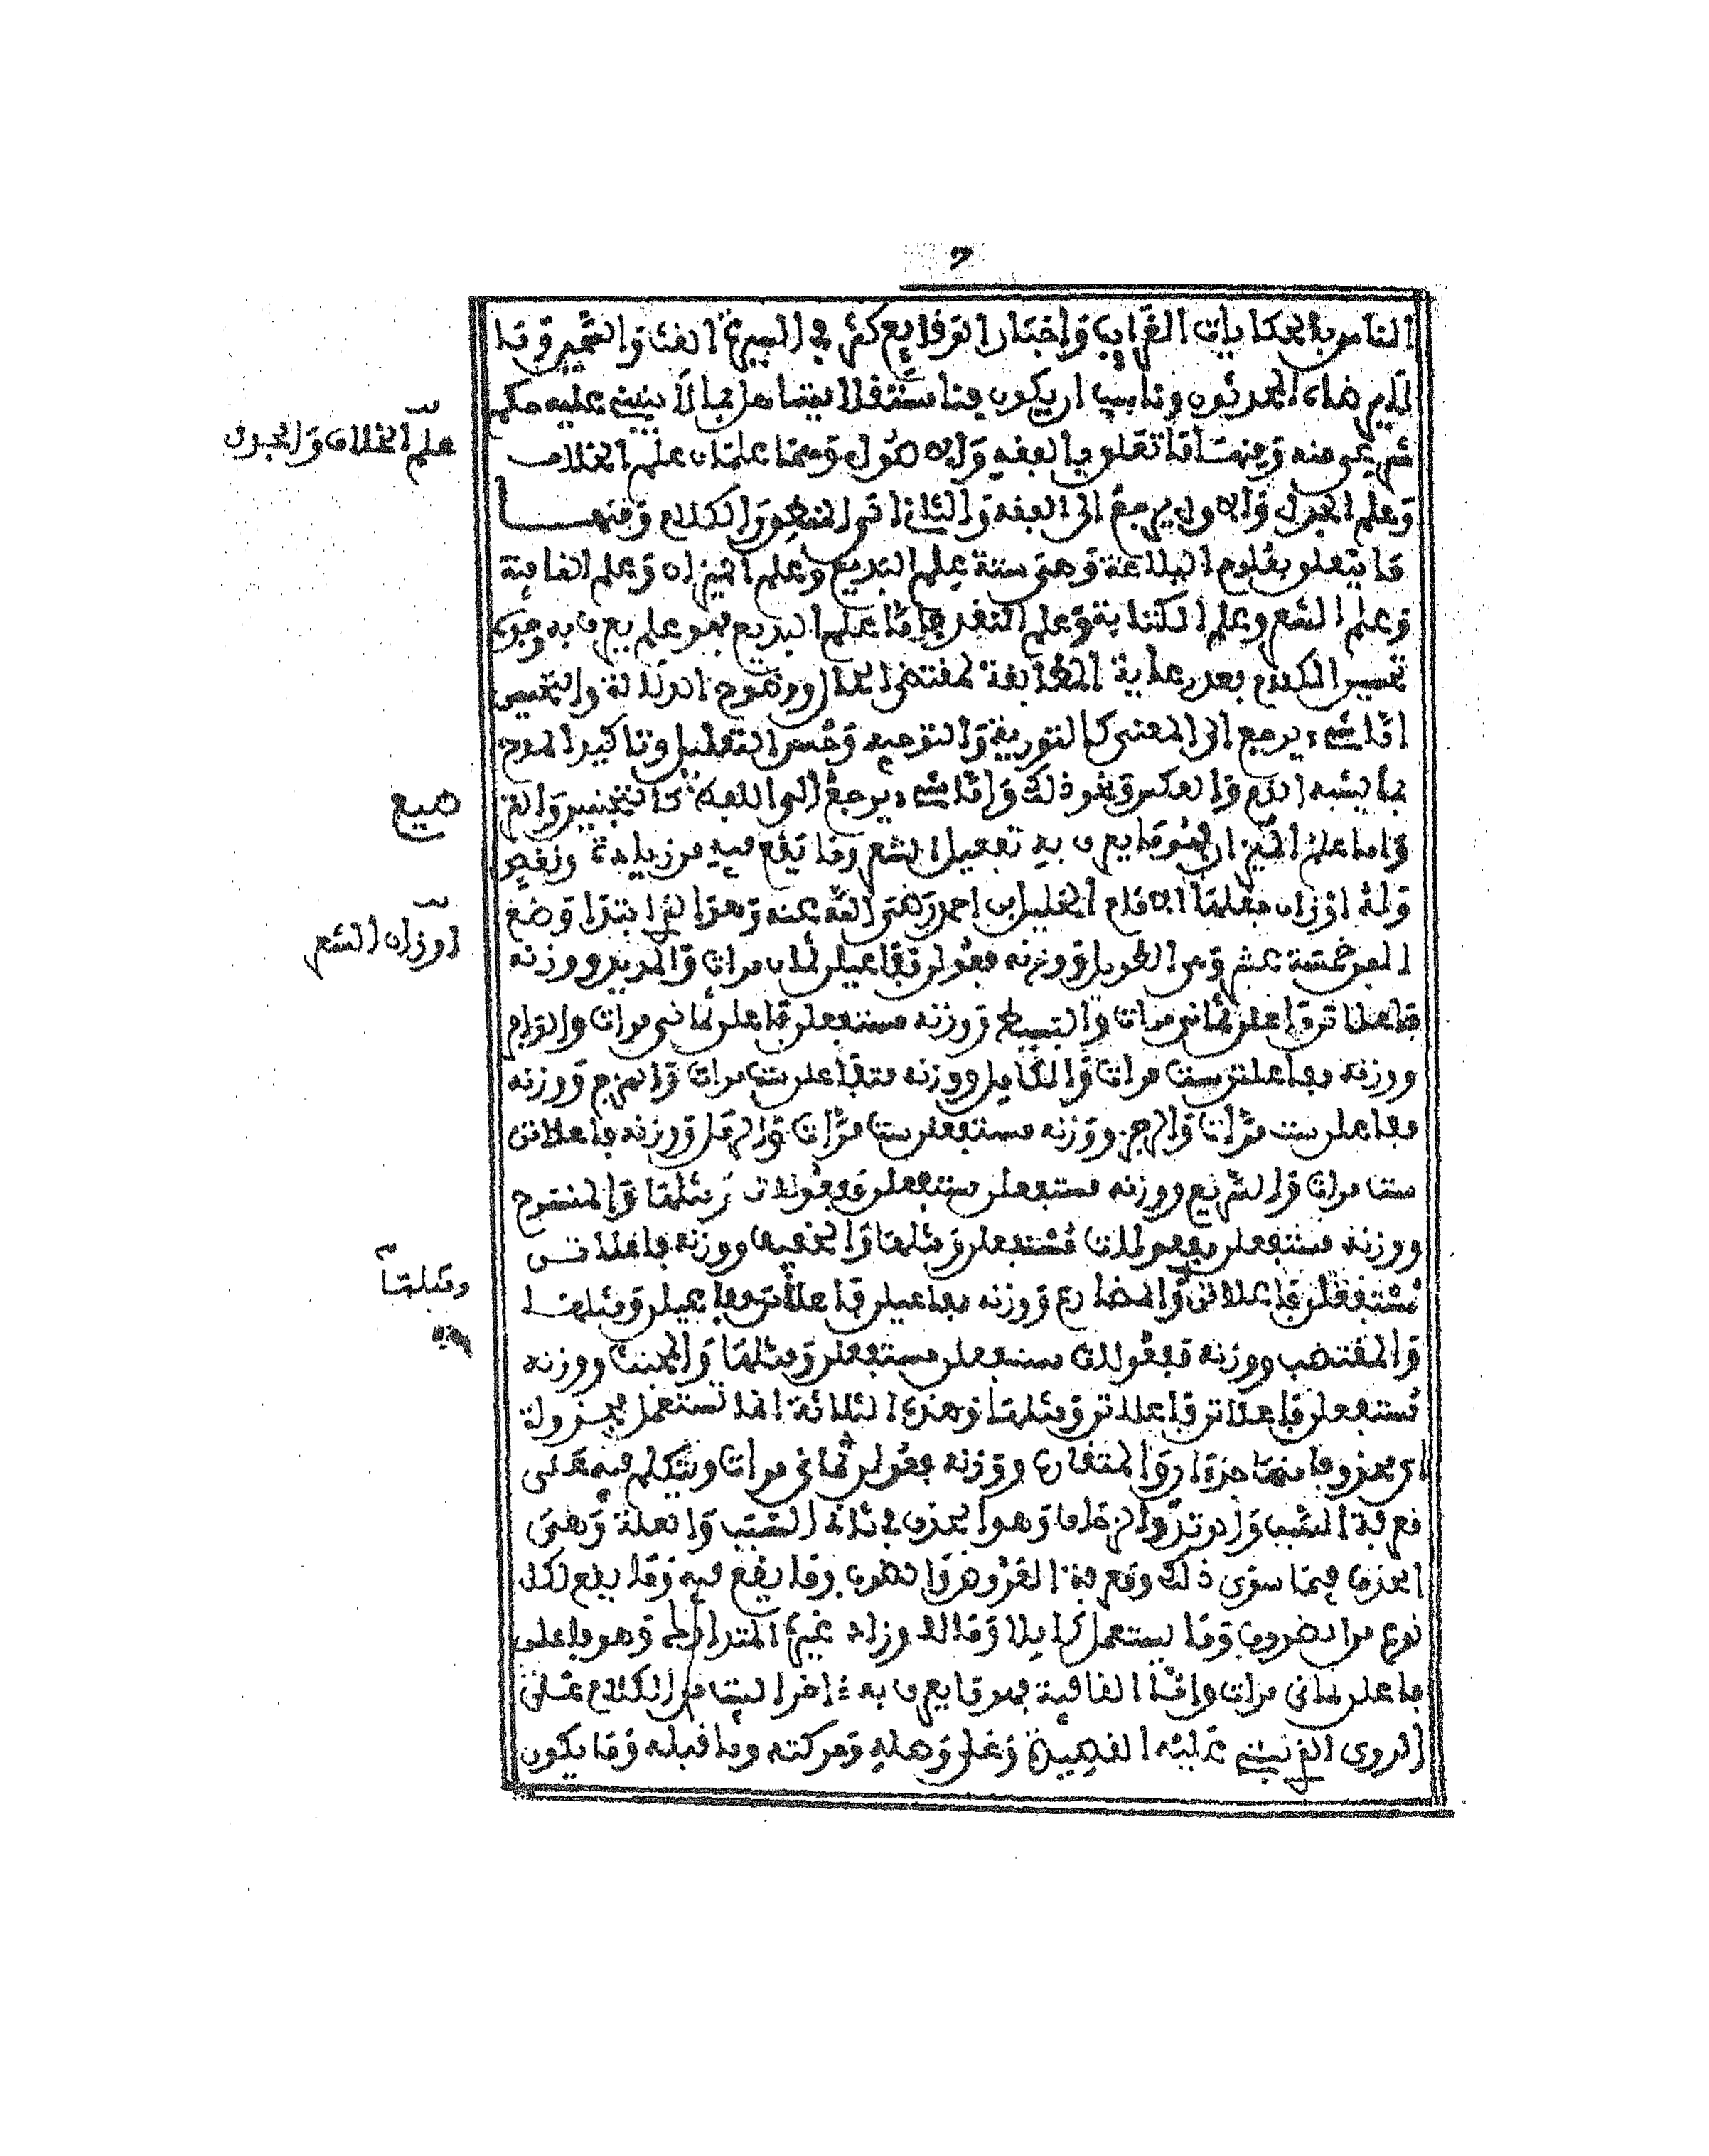 7
الناس بالحكايات الغراب واخبار الوقايع كثر في السيرة الغث والشمير وقد
شرعي منه ومنها ما تعلق بالفقه والاصول وهما علمان علم الخلاف
علم الخلاف والجدل
وعلم الجدل والاول يرجع الى الفقه والثاني الى المنطق والكلام ومنها
ما يتعلق بعلوم البلاغة وهي ستة علم البديع وعلم الميزان وعلم القافية
وعلم الشعر وعلم الكتابة وعلم النقد فاما علم البديع فهو علم يعرف به وجوه
تحسين الكلام بعد رعاية المطابقة لمقتضى الحال ووضوح الدلالة والتحسين
اما شيء يرجع الى المعنى كالتورية والتوجيه وحسن التعليل وتاكيد المدح
بما يشبه الذم والعكس ونحو ذلك واما شيء يرجع الى اللفظ كالتجنيس والتر
صيع
واما علم الميزان فهو ما يعرف به تفعيل الشعر وما يقع فيه من زيادة ونقص
وله اوزان جعلها الامام الخليل بن احمد رضي الله عنه وهو الذي ابتدا وضع
اوزان الشعر
العر خمسة عشر وهي الطويل ووزنه فعولن مفاعيلن ثمان مرات والمديد ووزنه
فاعلاتن فاعلن ثماني مرات والبسيط ووزنه مستفعلن فاعلن ثماني مرات والوافر
ووزنه مفاعلتن ست مرات والكامل ووزنه متفاعلن ست مرات والهزج ووزنه
مفاعلن ست مرات والرجز ووزنه مستفعلن ست مرات والرمل ووزنه فاعلاتن
ست مرات والسريع ووزنه مستفعلن مستفعلن مفعولات ومثلها والمنسرح
ووزنه مستفعلن مفعولات مستفعلن ومثلها والخفيف ووزنه فاعلاتن
مستفعلن فاعلاتن والمضارع ووزنه مفاعيلن فاعلاتن مفاعيلن ومثلها
ومثلها
والمقتضب ووزنه مفعولات مستفعلن مستفعلن ومثلها والمجتث ووزنه
مستفعلن فاعلاتن فاعلاتن ومثلها وهذه الثلاثة انما تستعمل مجزولة
اي محذوفا منها جزءان والمتقارب ووزنه فعولن ثماني مرات ويتكلم فيه على
معرفة السبب والوتد والزحاف وهو الحذف في ثاني السبب والعلة وهي
الحذف فيما سوى ذلك ومعرفة العروض والضرب وما يقع فيه وما يقع لكل
نوع من الضروب وما يستعمل كاملا ومالا وزاد غيره المتدارك وهو فاعلن
فاعلن ثماني مرات واما القافية فهو ما يعرف به اخر البيت من الكلام على
الروي الذي تبنى عليه القصيدة وعلى وصله وحركته وما قبله وما يكون